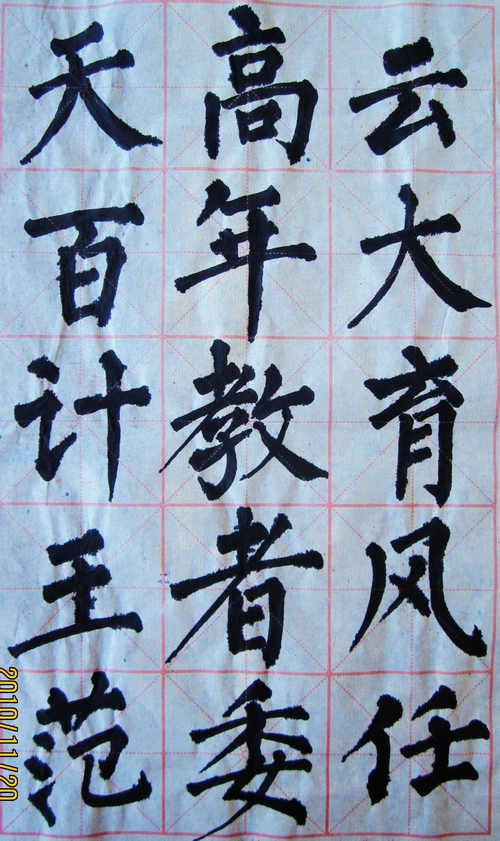 天高云
百年大
计教育
王者风
范委任
2010/11/20